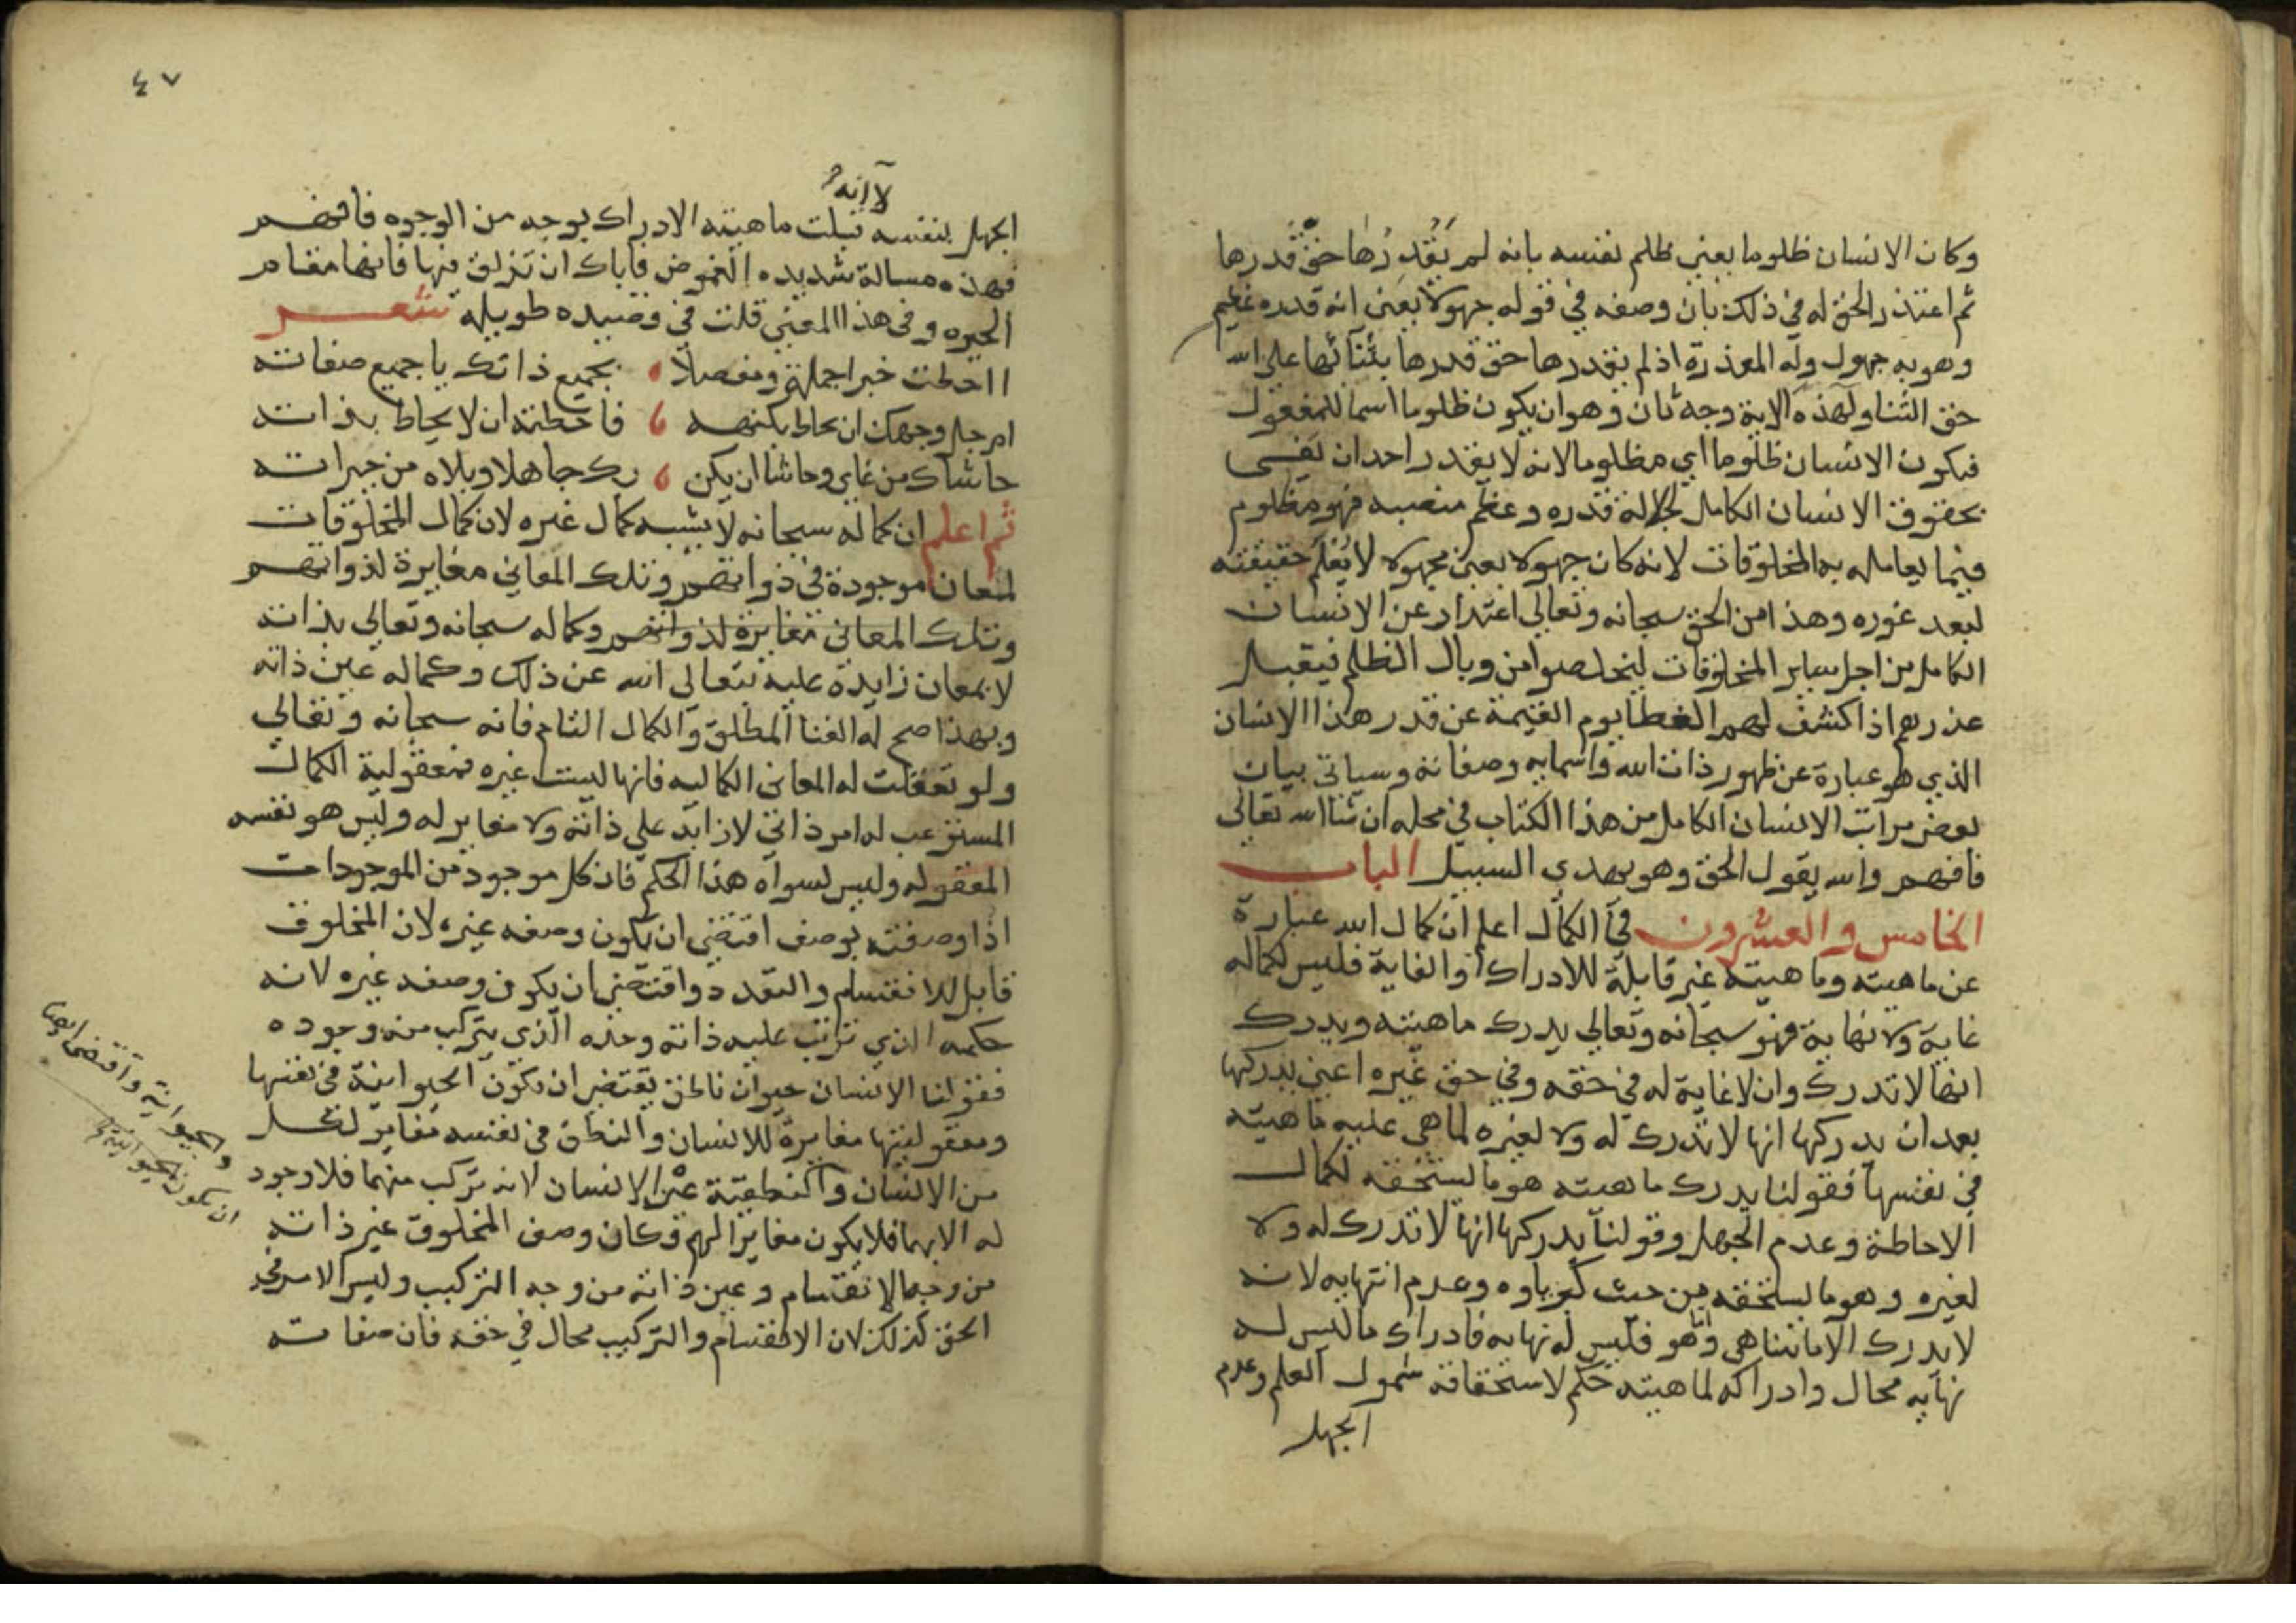 وكان الانسان ظلوما يعني ظلم نفسه بانه لم يَقْدِرُها حقَّ قدرها
ثم اعتذر الحق له في ذلك بان وصفه في قوله جهولا يعني انه قدره عظيم
وهو به جهول وله المعذرة اذ لم يقدرها حق قدرها بثنآئها على الله
حق الثنا ولهذه الاية وجه ثان وهو ان يكون ظلوما اسما للمفعول
فيكون الانسان ظلوما اي مظلوما لانه لا يقدر احد ان يفى
بحقوق الانسان الكامل لجلالة قدره وعظم منصبه فهو مظلوم
فيما يعامله به المخلوقات لانه كان جهولا يعني مجهولا لا يُعْلَم حقيقته
لبعد غوره وهذا من الحق سبحانه وتعالى اعتذار عن الانسان
الكامل من اجل ساير المخلوقات ليخلصوا من وبال الظلم فيقبل
عذرهم اذا كشف لهم الغطا يوم القيمة عن قدر هذا الانسان
الذي هو عبارة عن ظهور ذات الله واسمايه وصفاته وسياتي بيان
بعض مراتب الانسان الكامل من هذا الكتاب في محله ان شا الله تعالى
فافهم والله يقول الحق وهو يهدي السبيل الباب
الخامس والعشرون في الكمال اعلم ان كمال الله عبارة
عن ماهيته وماهيته غير قابلة للادراك والغاية فليس لكماله
غاية ولا نهاية فهو سبحانه وتعالى يدرك ماهيته ويدرك
انها لا تدرك وان لا غاية له في حقه وفي حق غيره اعني يدركها
بعد ان يدركها انها لا تدرك له ولا لغيره لما هي عليه ماهيته
في نفسها فقولنا يدرك ماهيته هو ما يستحقه لكمال
الاحاطة وعدم الجهل وقولنا يدركها انها لا تدرك له ولا
لغيره وهو ما يستحقه من حيث كبرياوه وعدم انتهايه لانه
لا يدرك الا ما يتناهى وهو فليس له نهايه فادراك ما ليس له
نهايه محال وادراكه لماهيته حكم لاستحقاقه شمول العلم وعدم
الجهل
٤٧
لا انه
الجهل بنفسه قبلت ماهيته الادراك بوجه من الوجوه فافهم
فهذه مسالة شديده الغموض فاياك ان تزلق فيها فانها مقام
الحيره وفي هذا المعنى قلت في قصيده طويله شعر
ااحطت خبرا جملة ومفصلا ، بجميع ذاتك يا جميع صفاته
ام جل وجهك ان يحاط بكنهه ، فاحطته ان لا يحاط بذاته
حاشاك من غاي وحاشا ان يكن ، بك جاهلا ويلاه من حيراته
ثم اعلم ان كماله سبحانه لا يشبه كمال غيره لان كمال المخلوقات
لمعان موجودة في ذواتهم وتلك المعاني مغايرة لذواتهم
وتلك المعاني مغايرة لذواتهم وكماله سبحانه وتعالى بذاته
لا بمعان زايدة عليه تعالى الله عن ذلك وكماله عين ذاته
وبهذا صح له الغنا المطلق والكمال التام فانه سبحانه وتعالى
ولو تعقلت له المعاني الكماليه فانها ليست غيره فمعقولية الكمال
المستوعب له امر ذاتي لا زايد على ذاته ولا مغاير له وليس هو نفسه
المعقوله وليس لسواه هذا الحكم فان كل موجود من الموجودات
اذا وصفته بوصف اقتضى ان يكون وصفه غيره لان المخلوق
قابل للانقسام والتعدد واقتضى ان يكون وصفه غيره لانه
حكمه الذي ترتب عليه ذاته وحده الذي يتركب منه وجوده
فقولنا الانسان حيوان ناطق يقتضي ان تكون الحيوانية في نفسها
ومعقوليتها مغايرة للانسان والنطق في نفسه مغاير لكل
من الانسان والنطقية عين الانسان لانه تركب منهما فلا وجود
له الا بهما فلا يكون مغايرا لهم فكان وصف المخلوق غير ذاته
من وجه الانقسام وعين ذاته من وجه التركيب وليس الامر في
الحق كذلك لان الانقسام والتركيب محال في حقه فان صفاته
والحيوانية واقتضى ايضا
ان تكون الحيوانية